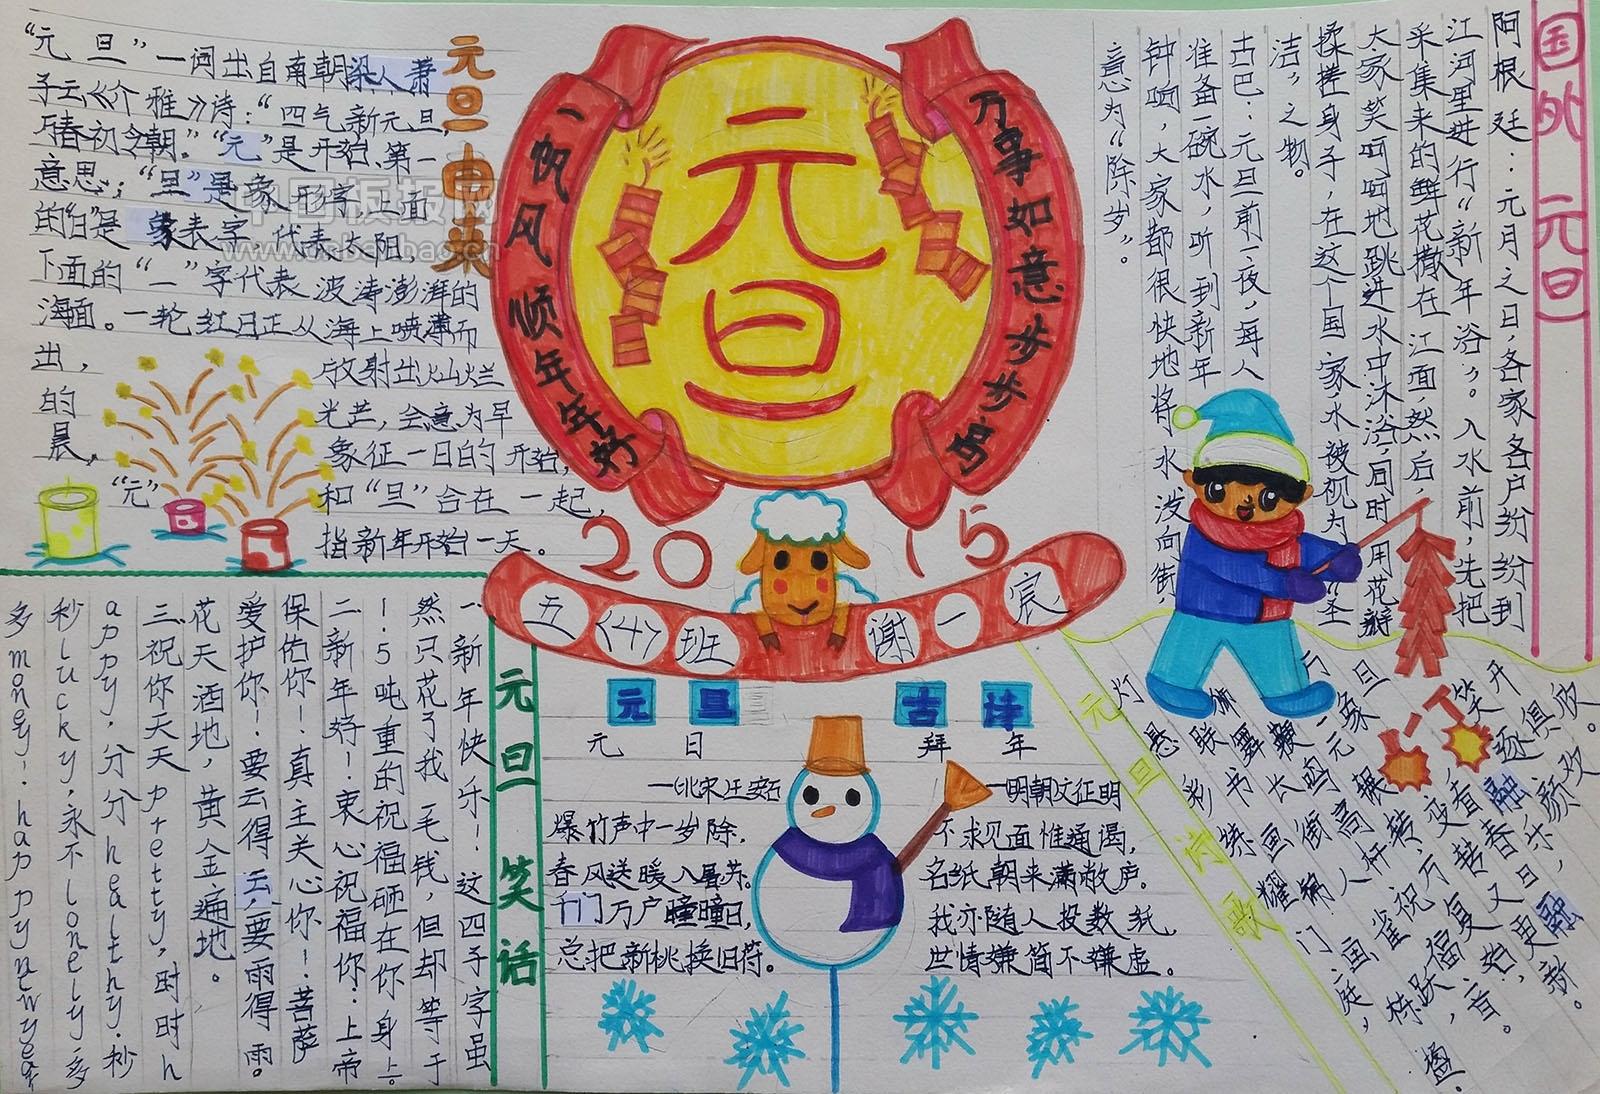 元旦由来
“元旦”一词出自南朝梁人萧
子云《介雅》诗：“四气新元旦，
寿春初今朝。”“元”是开始、第一
意思；“旦”是象形字，上面
的“日”是象表字，代表太阳，
下面的“一”字代表波涛澎湃的
海面。一轮红日正从海上喷薄而
出，放射出灿烂
的光芒，会意为早
晨，象征一日的开始，
“元”和“旦”合在一起，
指新年开始一天。
一帆风顺年年好
元旦
万事如意步步高
2015
五〈4〉班
谢一宸
国外元旦
阿根廷：元月之日，各家各户纷纷到
江河里进行“新年浴”。入水前，先把
采集来的鲜花撒在江面，然后，
大家笑呵呵地跳进水中沐浴，同时用花瓣
揉搓身子，在这个国家，水被视为“圣
洁”之物。
古巴：元旦前一夜，每人
准备一碗水，听到新年
钟响，大家都很快地将水泼向街
意为“除岁”。
元旦笑话
一、新年快乐！这四子字虽
然只花了我一毛钱，但却等于
1.5吨重的祝福砸在你身上。
二、新年好！衷心祝福你：上帝
保佑你！真主关心你！菩萨
爱护你！要云得云，要雨得雨。
花天酒地，黄金遍地。
三、祝你天天pretty，时时h
appy，分分healthy.秒
秒lucky，永不lonely，多
多money！happynewyear
元旦古诗
元日
—北宋王安石
爆竹声中一岁除，
春风送暖入屠苏。
千门万户曈曈日，
总把新桃换旧符。
拜年
—明朝文征明
不求见面惟通谒，
名纸朝来满敝庐。
我亦随人投数纸，
世情嫌简不嫌虚。
元旦诗歌
中国板报网